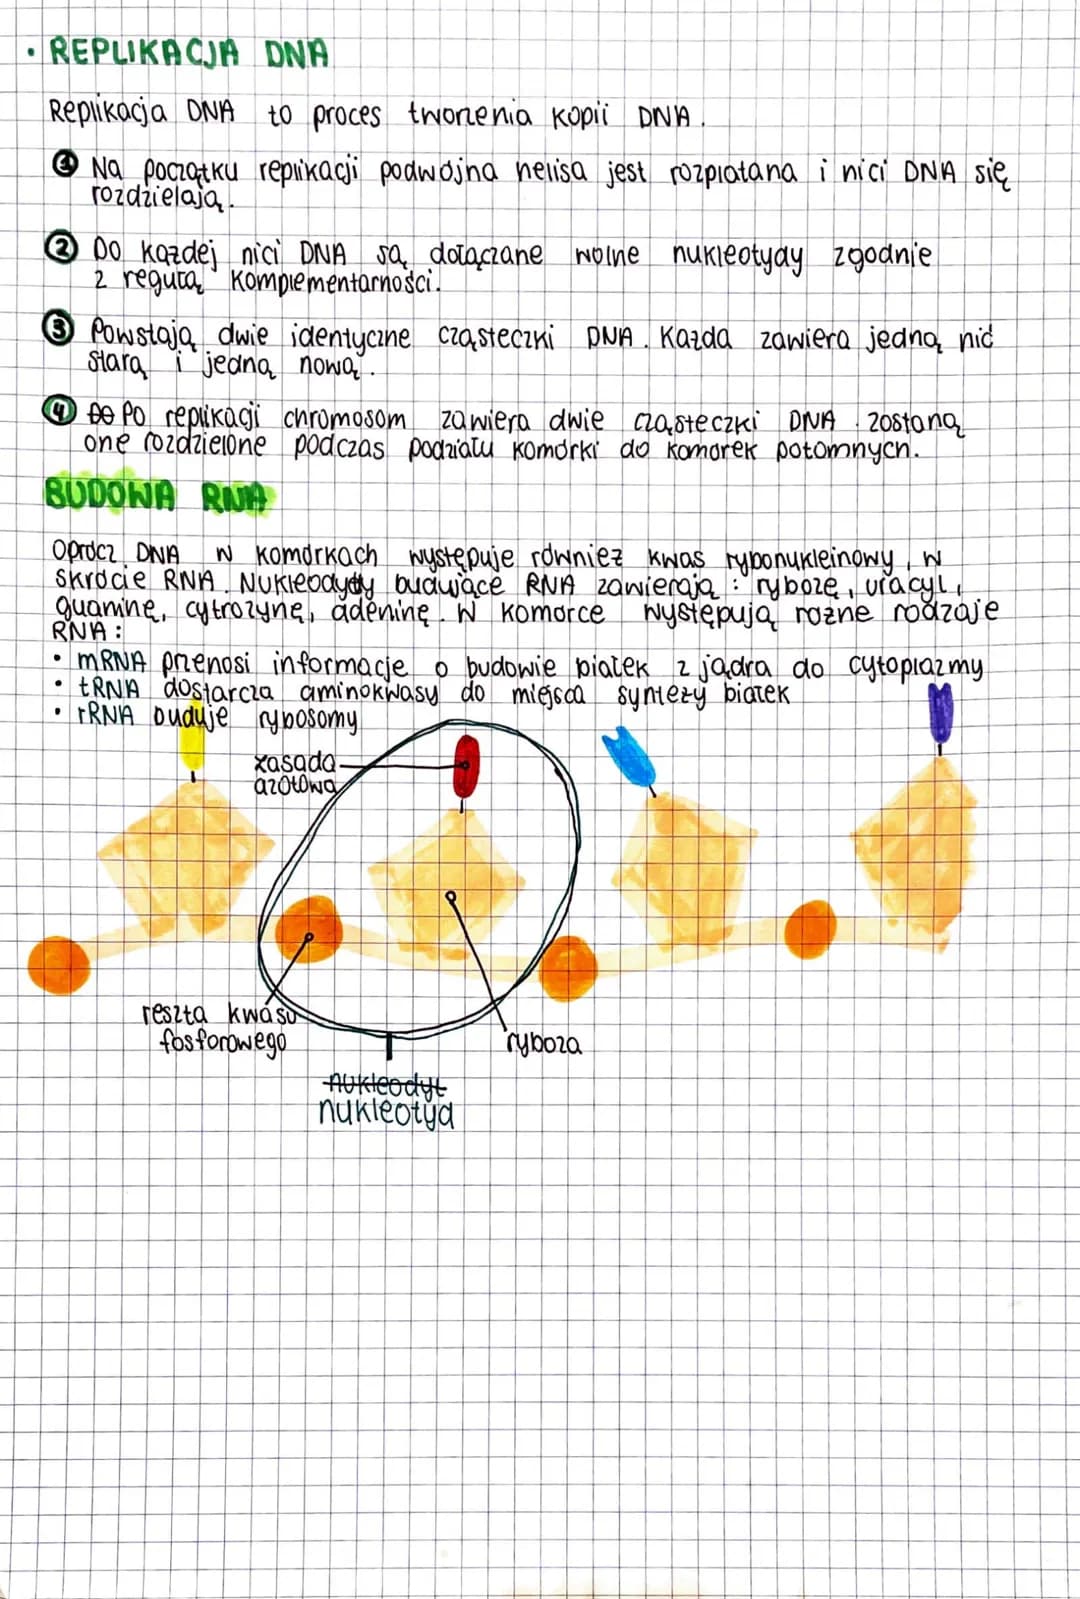 • REPLIKACJA DNA
Replikacja DNA to proces tworzenia kopii DNA.
① Na początku replikacji podwójna helisa jest rozplatana i nici DNA się
rozdzielają.
② Do każdej nici DNA są dołączane wolne nukleotydy zgodnie
z regułą komplementarności.
③ Powstają dwie identyczne cząsteczki DNA. Każda zawiera jedną nić
starą i jedną nową.
④ Po replikacji chromosom zawiera dwie cząsteczki DNA. Zostaną
one rozdzielone podczas podziału komórki do komórek potomnych.
BUDOWA RNA
Oprócz DNA w komórkach występuje również kwas rybonukleinowy, w
skrócie RNA. Nukleodydy budujące RNA zawierają: rybozę, uracyl,
guaninę, cytrozynę, adeninę. W komórce występują różne rodzaje
RNA:
• mRNA przenosi informacje o budowie białek z jądra do cytoplazmy
• tRNA dostarcza aminokwasy do miejsca syntezy białek
• rRNA buduje rybosomy
zasada
azotowa
reszta kwasu
fosforowego
ryboza
nukleodyt
nukleotyd